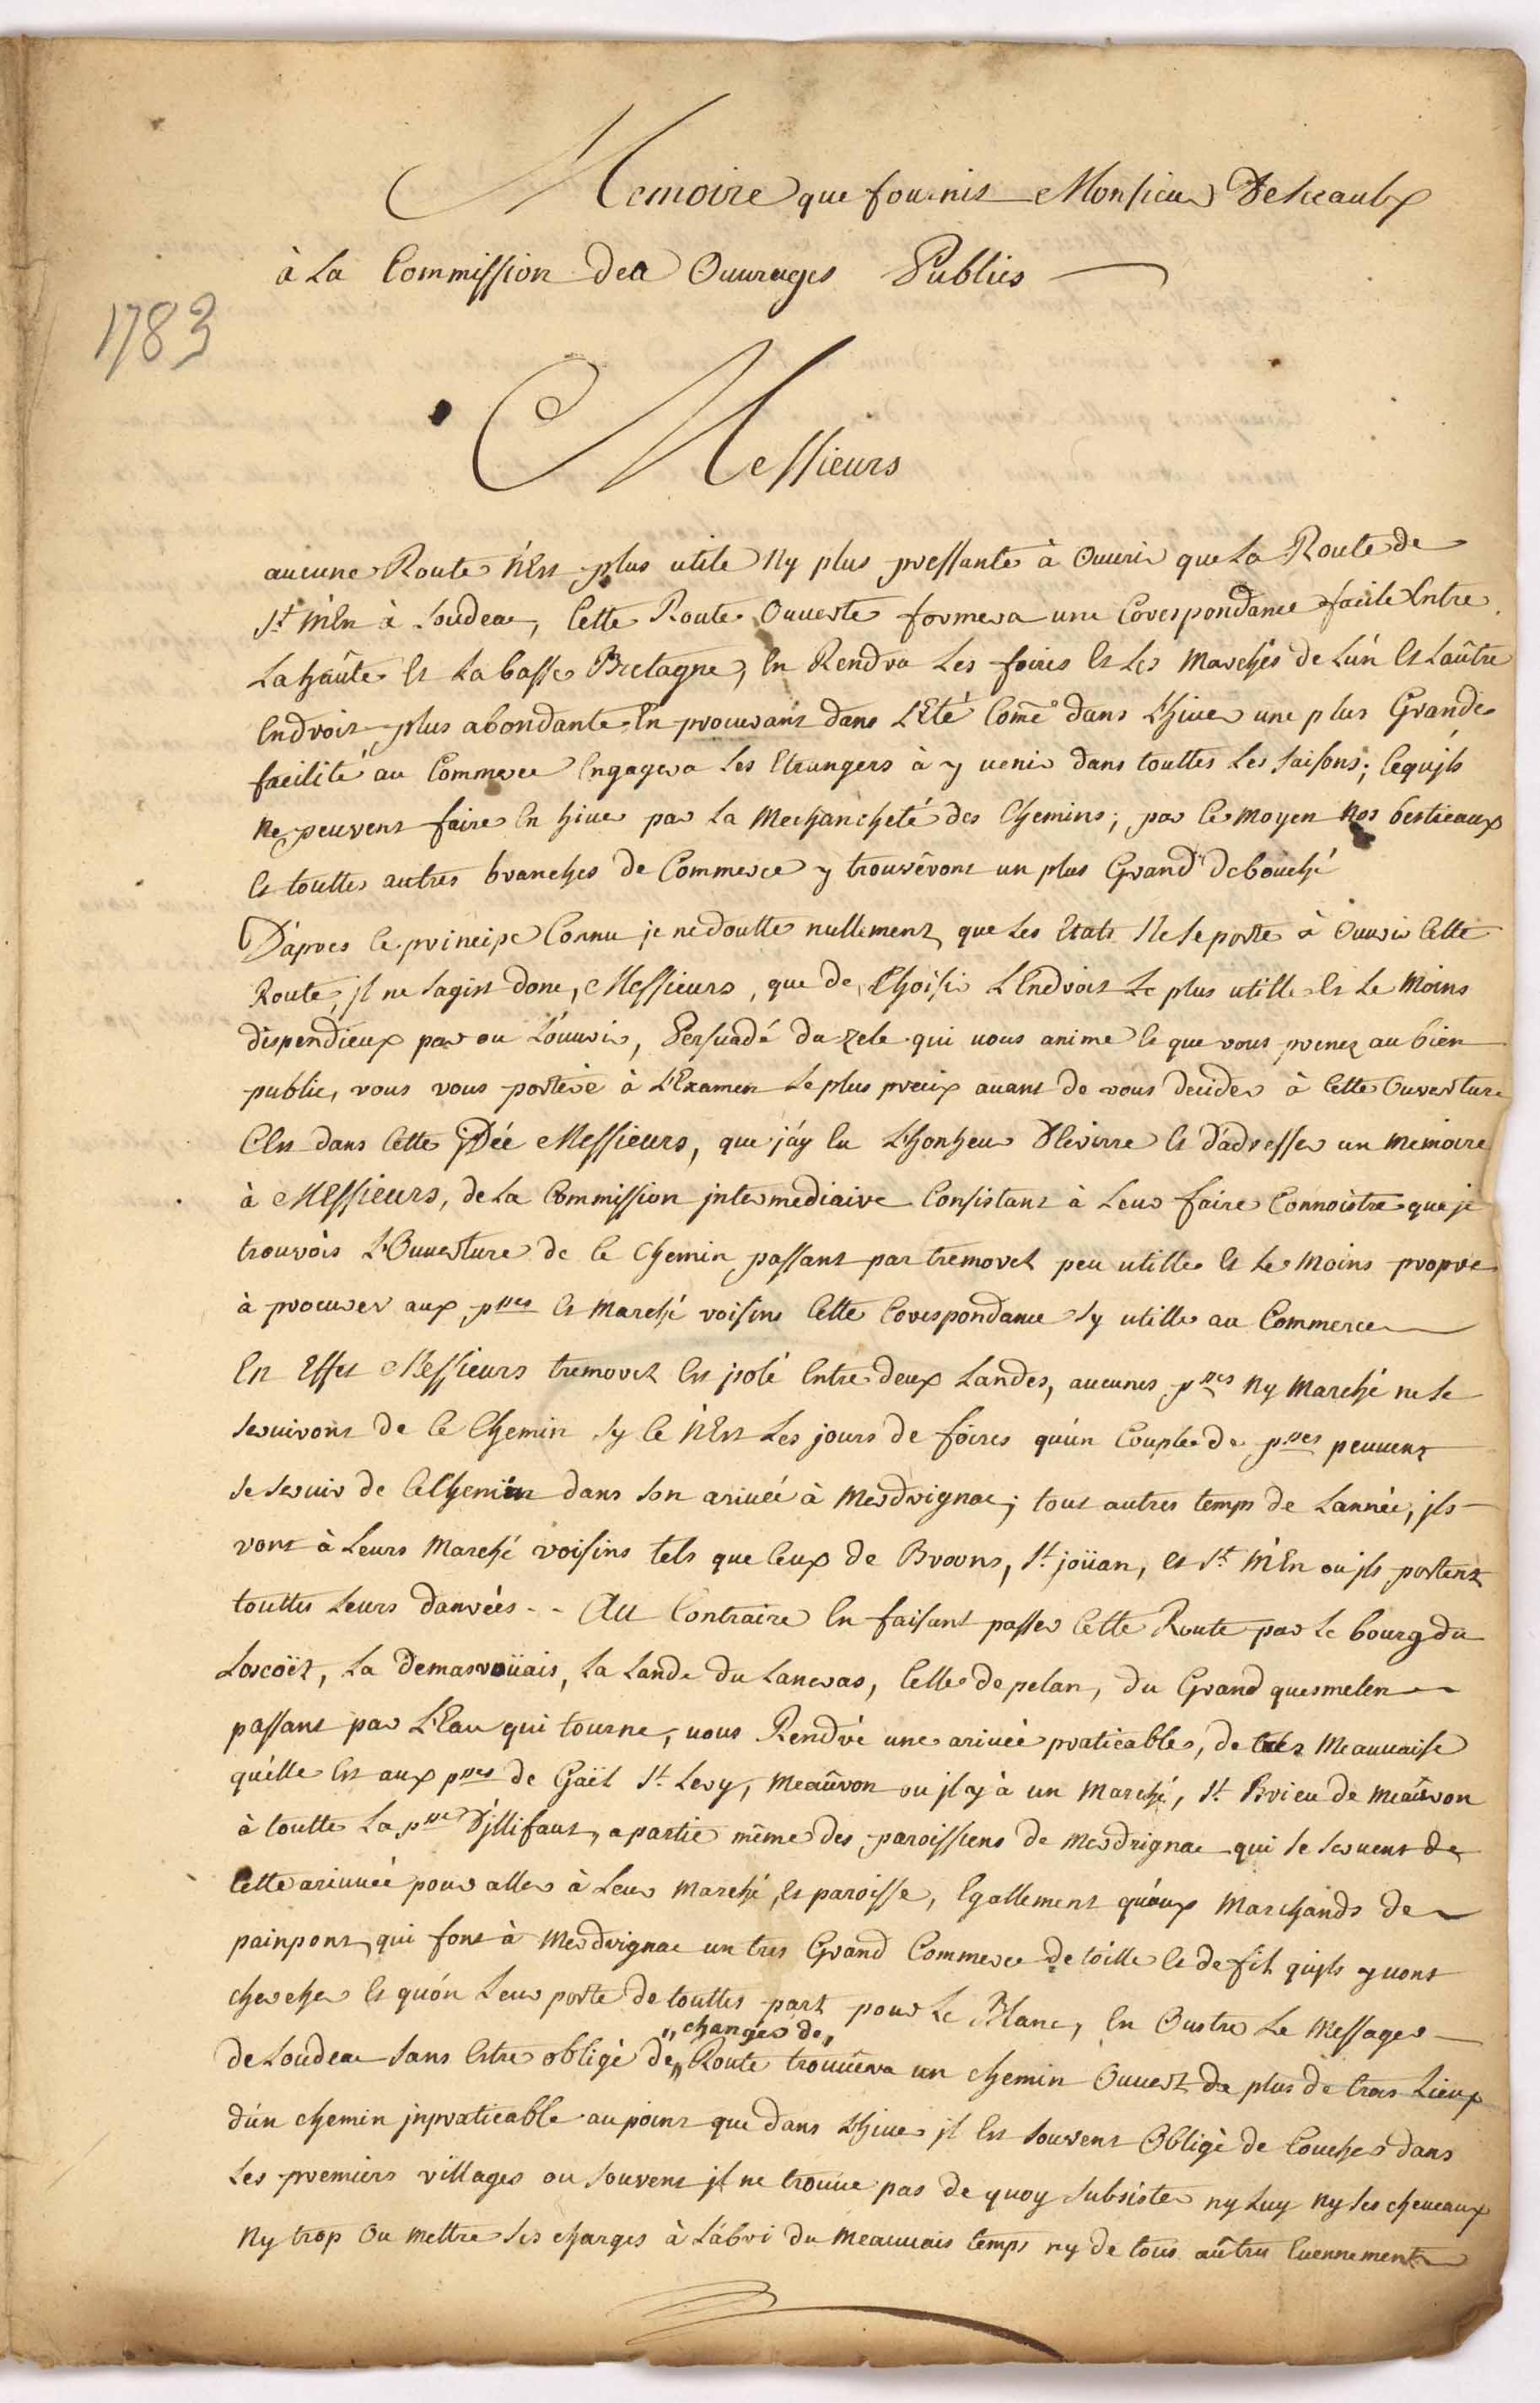 Memoire que fournit Monsieur Desceaulx
à La Commission des Ouurages Publics
1783
Messieurs
aucune Route n'Est plus utile Ny plus pressante à Ouurir que La Route de
St. mEn à Loudeac, Cette Route Ouuerte formera une Corespondance facile Entre
La haûte Et La basse Bretagne, En Rendra Les foires Et Les Marchés de L'ún Et L'aûtre
Endroit plus abondante. En procurant dans L'Eté Comē dans L'hiuer une plus Grande
facilité au Commerce Engagera Les Etrangers à y uenir dans touttes Les saisons; Cequ'jls
ne peuvent faire En hiuer par La Mechancheté des Chemins; par ce moyen nos bestieaux
Et touttes autres branches de Commerce y trouvêront un plus Grand debouché
D'apres Ce principe Connu je ne doutte nullement que Les Etats Ne se porte à Ouurir Cette
Route, jl ne s'agist donc, Messieurs, que de Choisir L'Endroit Le plus utille Et Le Moins
dispendieux par ou L'ouurir, Persuadé du zele qui uous anime Ce que vous prenez au bien
public, vous vous porteré à L'Examen Le plus precix auant de vous decider à Cette Ouverture
C'Est dans Cette jDée Messieurs, que j'ay Eu L'honheur D'Ecrirre Et d'adresser un memoire
à MEssieurs, de La Commission jntermediaire Consistant à Leur faire Connoistre que je
trouvois L'Ouuerture de Ce Chemin passant par tremorel peu utille Et Le Moins propre
à procurer aux psses Et Marché voisins Cette Corespondance sy utille au Commerce
En Effet Messieurs tremorel Est jsolé Entre deux Landes, aucunes psses Ny Marché ne se
seruiront de Ce Chemin sy Ce n'Est Les jours de foires qu'ún Couple de psses peuuent
se seruir de CeChemin dans son ariuée à Merdrignac; tout autres temps de L'année, jls
vont à Leurs Marché voisins tels que Ceux de Broons, St. joüan, Et St. mEn ou jls portent
touttes Leurs danrées - - Au Contraire En faisant passer Cette Route par Le bourg du
Loscoët, La Demasvoüais, La Lande du Lancras, Celle de pelan, du Grand quesmelen
passant par L'Eau qui tourne, uous Rendré une ariuée praticable, de tres Meauuaise
qu'elle Est aux psses de Gaël St. Lery, Meaûron ou jl y à un Marché, St. Brieu de Meaûron
à toutte La psse D'jllifaut, a partie même des paroissiens de Merdrignac qui se seruent de
Cette ariuuée pour aller à Leur Marché, Et paroisse, Egallement qu'aux Marchands de
painpont qui font à Merdrignac un tres Grand Commerce de toille Et de fil qu'jls y uont
chercher Et qu'ón Leur porte de touttes part pour Le Blanc, En Oustre Le Messager
"changer de"
de Loudeac sans Estre obligé de" Route trouuêra un chemin Ouuert de plus de trois Lieux
d'ún chemin jnpraticable au point que dans L'hiuer jl Est souvent Obligé de Coucher dans
Les premiers villages ou souvent jl ne trouue pas de quoy subsister ny Luy ny ses cheueaux
Ny trop Ou mettre ses charges à L'abri du Meauuais temps ny de tous aûtres Euennements